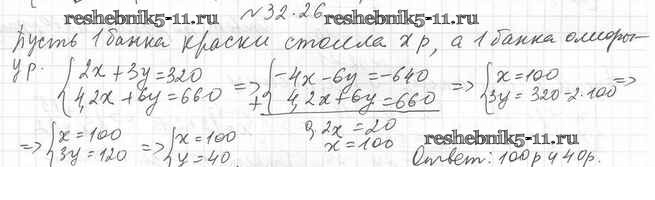 №32.26
reshebnik5-11.ru reshebnik5-11.ru
Пусть 1 банка краски стоила x р, а 1 банка олифы -
y р. {2x+3y=320 4,2x+6y=660 => + {-4x-6y=-640 4,2x+6y=660 => {x=100 3y=320-2·100 =>
0,2x=20
x=100
=> {x=100 3y=120 => {x=100 y=40.
reshebnik5-11.ru
Ответ: 100р и 40р.